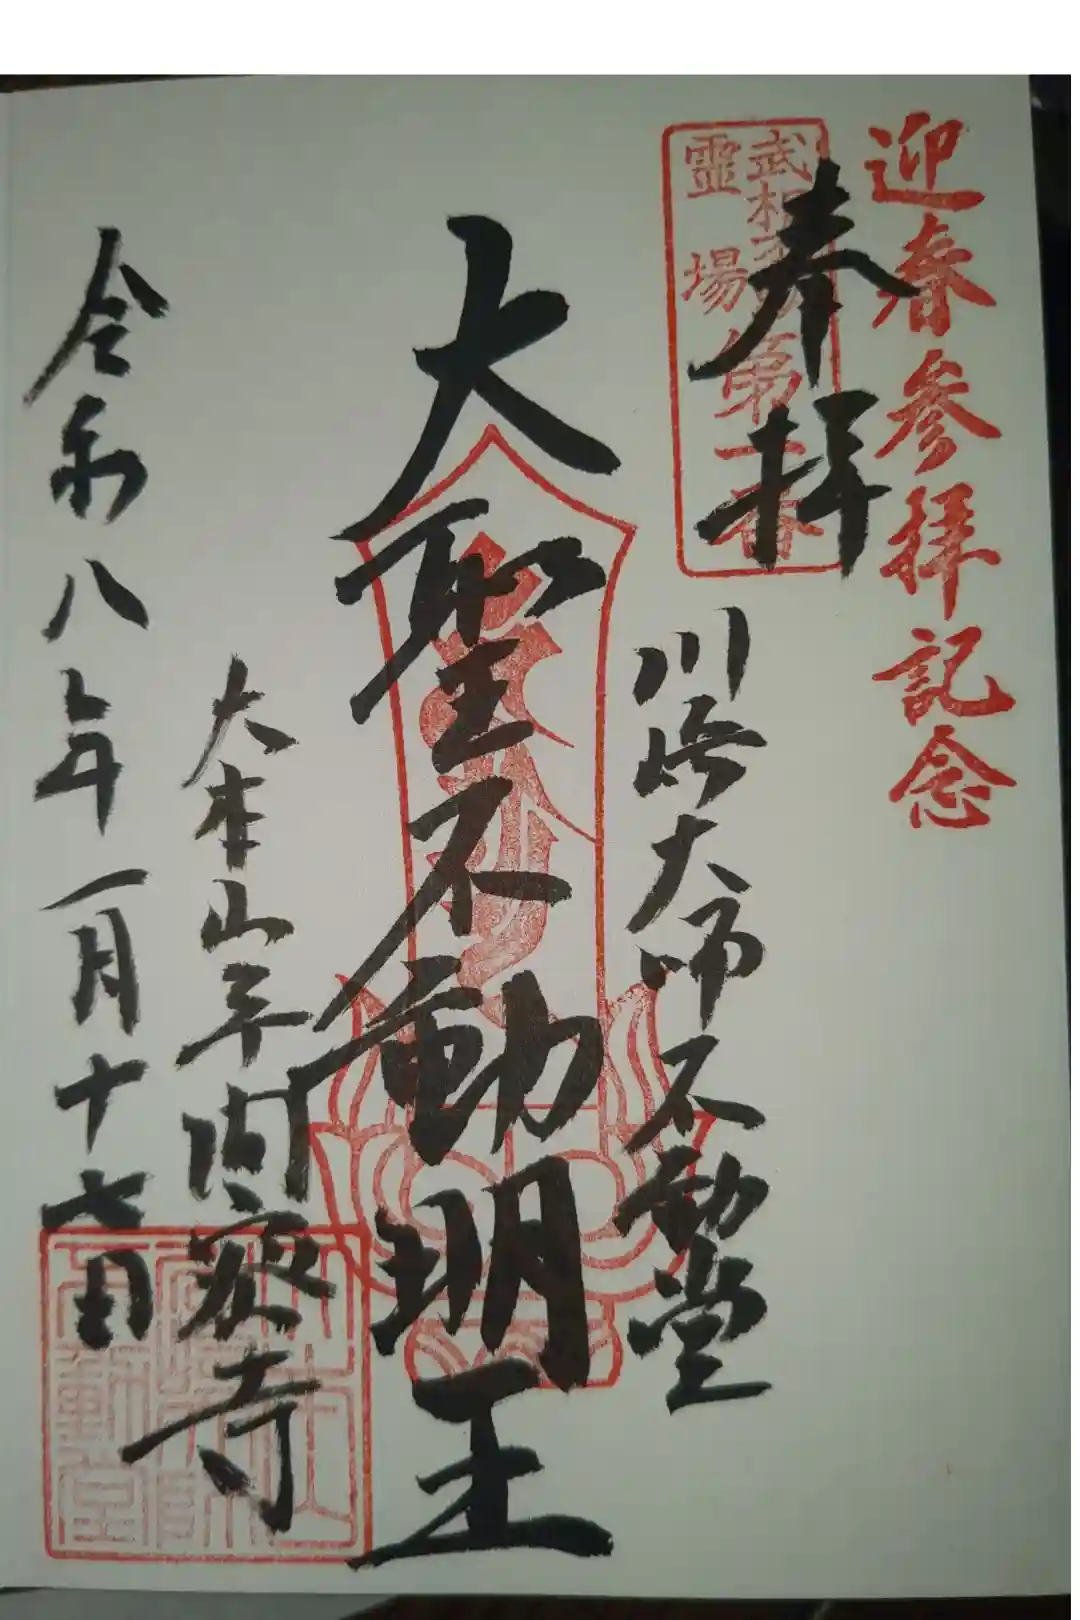 迎春参拝記念
奉拝
武相不動
靈場
第一番
川崎大师不動堂
大聖不動明王
大本山平间寂寺
令和八年一月十七日